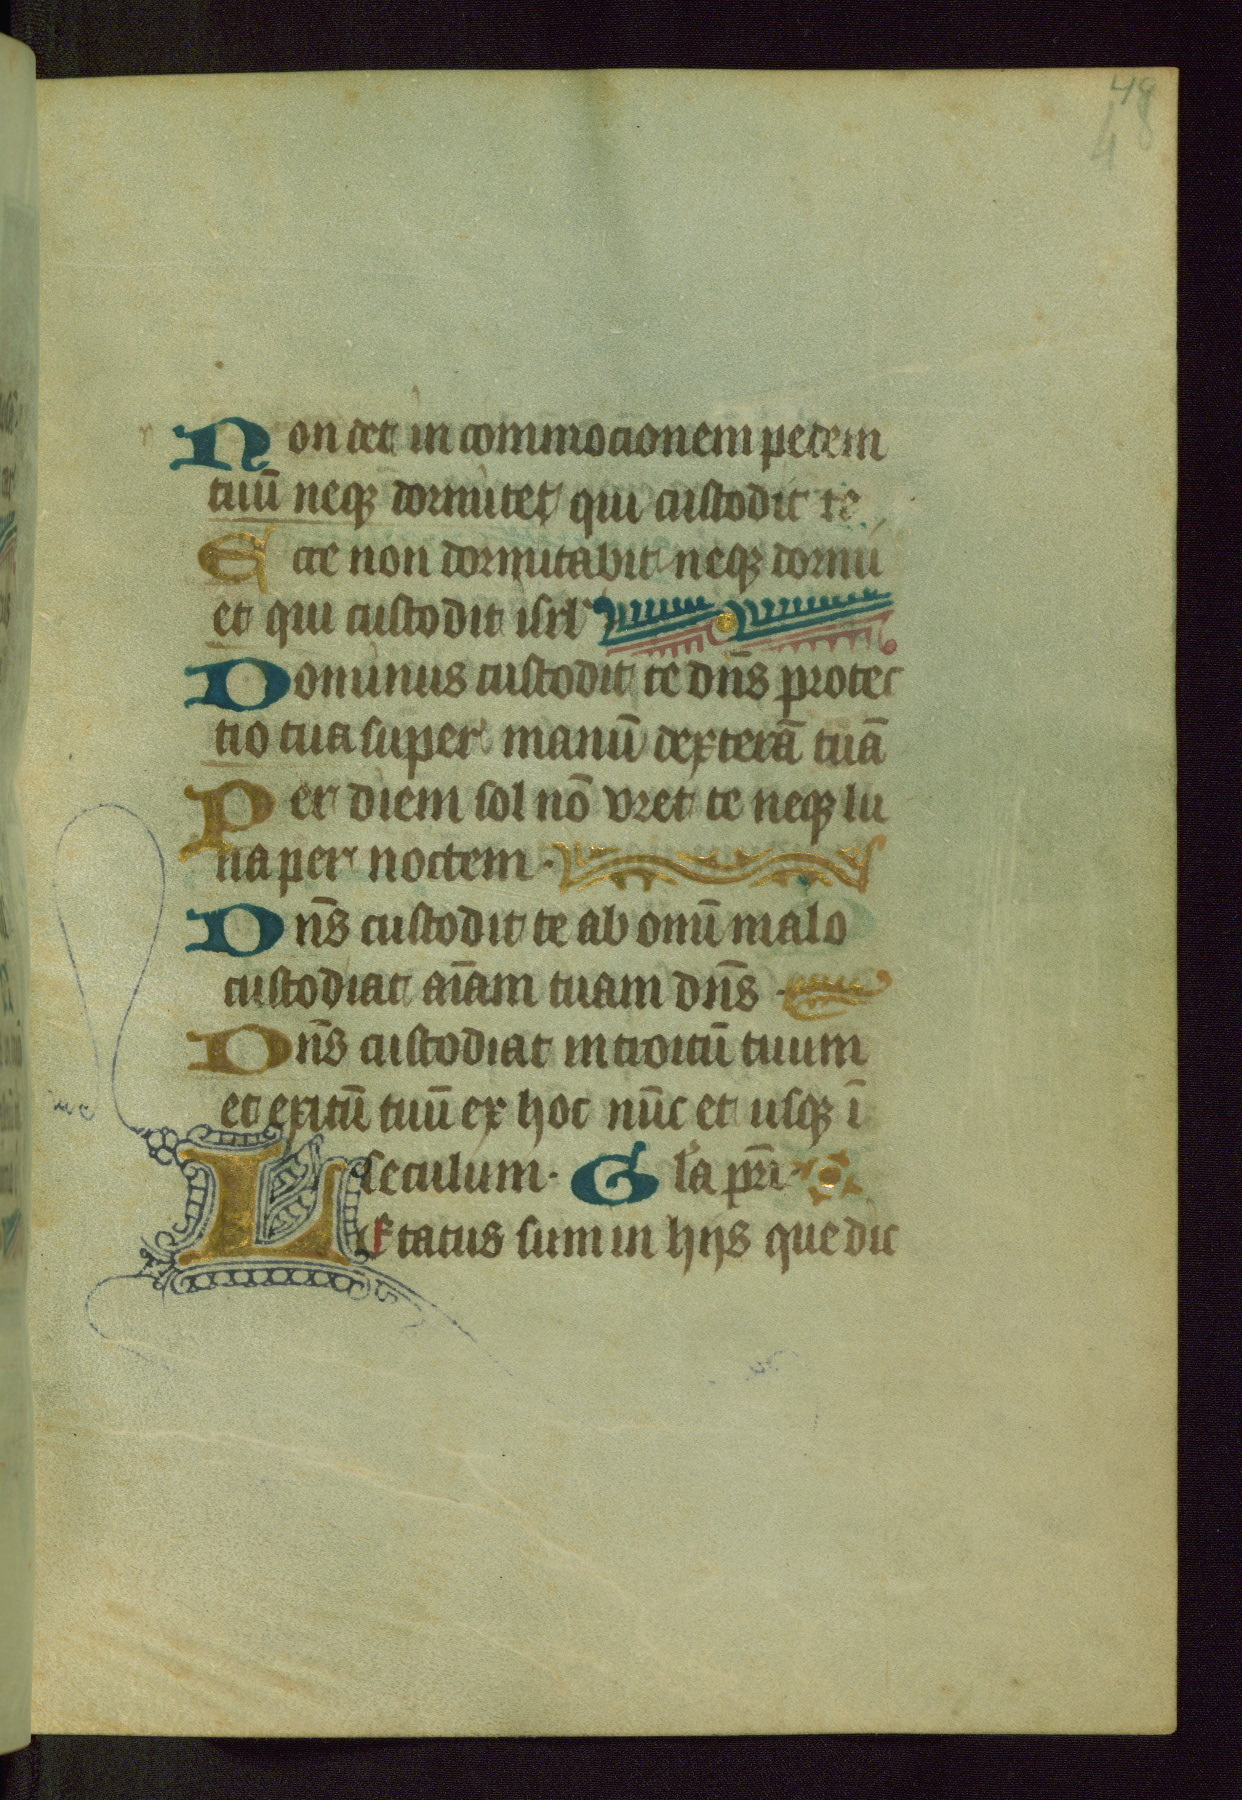 48
48
Non det in commocionem pedem
tuū neqꝫ dormitet qui custodit te
Ecce non dormitabit neqꝫ dormi
et qui custodit isrl
Dominus custodit te dn̄s protec
tio tua super manū dexterā tuā
Per diem sol nō vret te neqꝫ lu
na per noctem ·
Dn̄s custodit te ab omī malo
custodiat aīam tuam dn̄s
Dn̄s custodiat introitū tuum
et exitū tuū ex hoc nūc et usqꝫ ī
seculum · Gl'a pr̄i ·
Letatus sum in hijs que dic